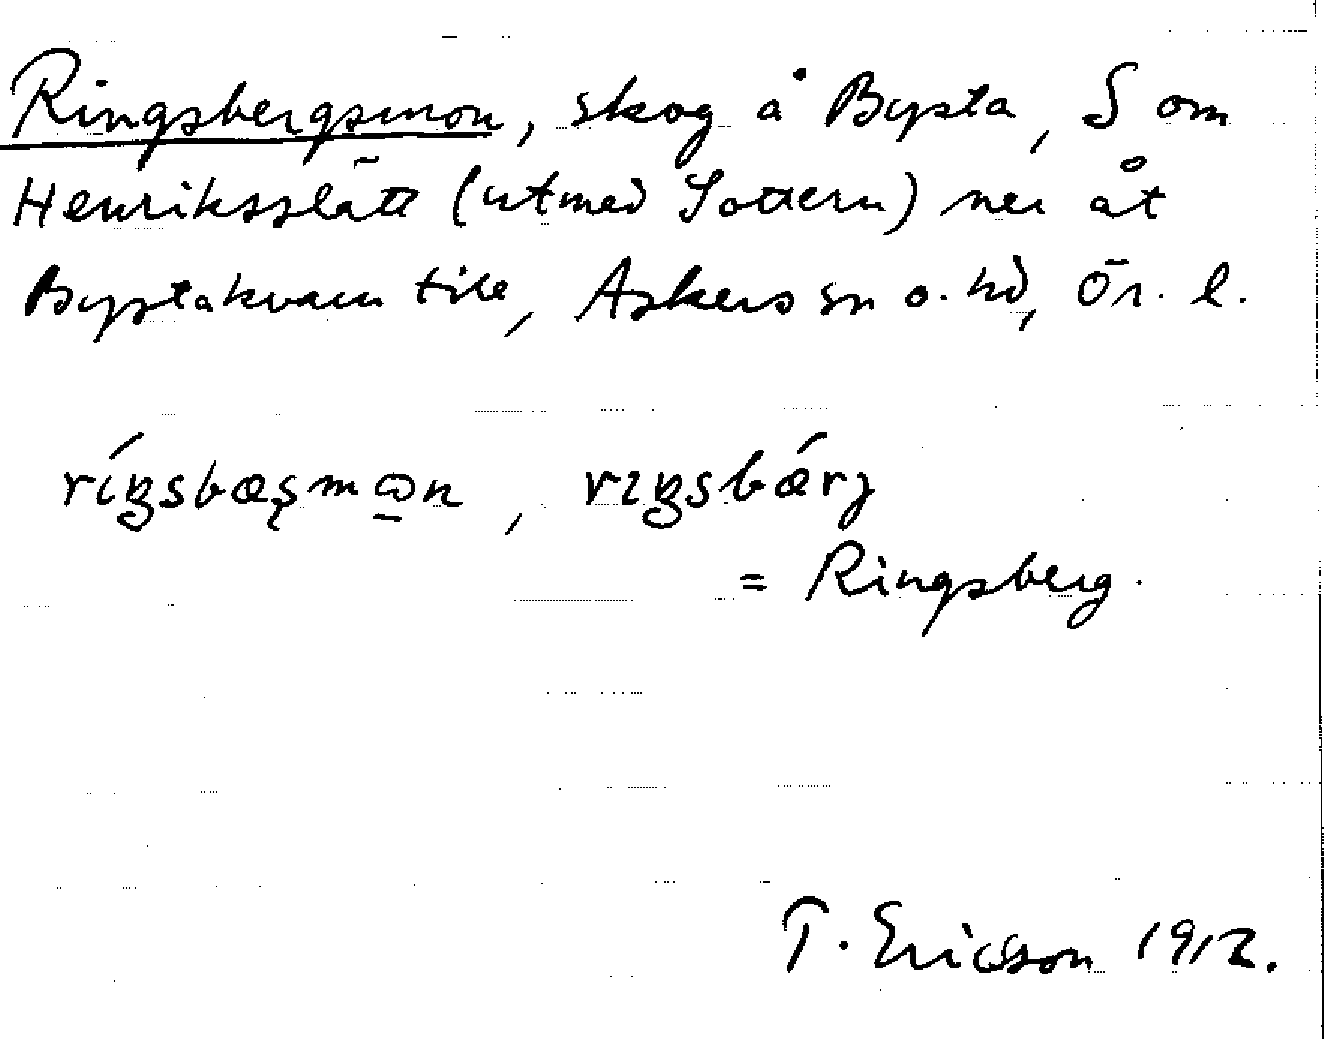 Ringsbergsmon, skog å Bysta, S om
Henriksslätt (utmed Sottern) ner åt
Bystakvarn till, Askers sn o. hd, Ör. l.
ríŋsbæʂmωn, rıŋsbǽrj
= Ringsberg.
T. Ericsson 1912.